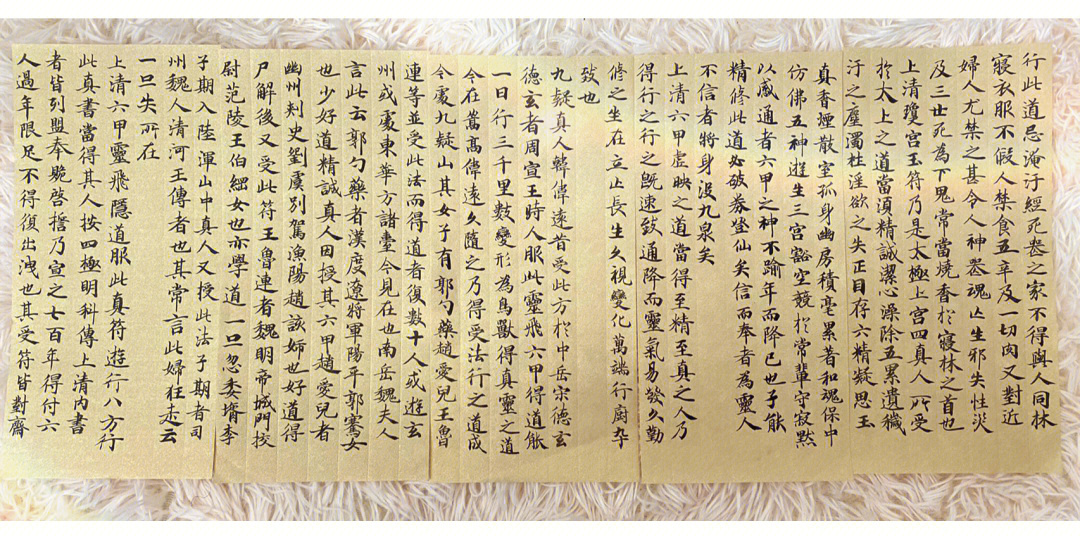 行此道忌淹汙經死喪之家不得與人同床
寢衣服不假人禁食五辛及一切肉又對近
婦人尤禁之甚令人神喪魂亡生邪失性災
及三世死為下鬼常當燒香於寢床之首也
上清瓊宮玉符乃是太極上宮四真人所受
於太上之道當須精誠潔心澡除五累遺穢
汙之塵濁杜淫欲之失正目存六精凝思玉
真香煙散室孤身幽房積毫累著和魂保中
仿佛五神遊生三宮豁空競於常輩守寂默
以感通者六甲之神不踰年而降已也子能
精修此道必破券登仙矣信而奉者為靈人
不信者將身沒九泉矣
上清六甲虛映之道當得至精至真之人乃
得行之行之既速致通降而靈氣易發久勤
修之坐在立亡長生久視變化萬端行廚卒
致也
九疑真人韓偉遠昔受此方於中岳宗德玄
德玄者周宣王時人服此靈飛六甲得道能
一日行三千里數變形為鳥獸得真靈之道
今在嵩高偉遠久隨之乃得受法行之道成
今處九疑山其女子有郭勺藥趙愛兒王魯
連等並受此法而得道者復數十人或遊玄
州或處東華方諸臺今見在也南岳魏夫人
言此云郭勺藥者漢度遼將軍陽平郭騫女
也少好道精誠真人因授其六甲趙愛兒者
幽州刾史劉虞別駕漁陽趙該姊也好道得
尸解後又受此符王魯連者魏明帝城門挍
尉范陵王伯綱女也亦學道一旦忽委壻李
子期入陸渾山中真人又授此法子期者司
州魏人清河王傳者也其常言此婦狂走云
一旦失所在
上清六甲靈飛隱道服此真符遊行八方行
此真書當得其人按四極明科傳上清內書
者皆列盟奉貺啓擔乃宣之七百年得付六
人過年限足不得復出洩也其受符皆對齋